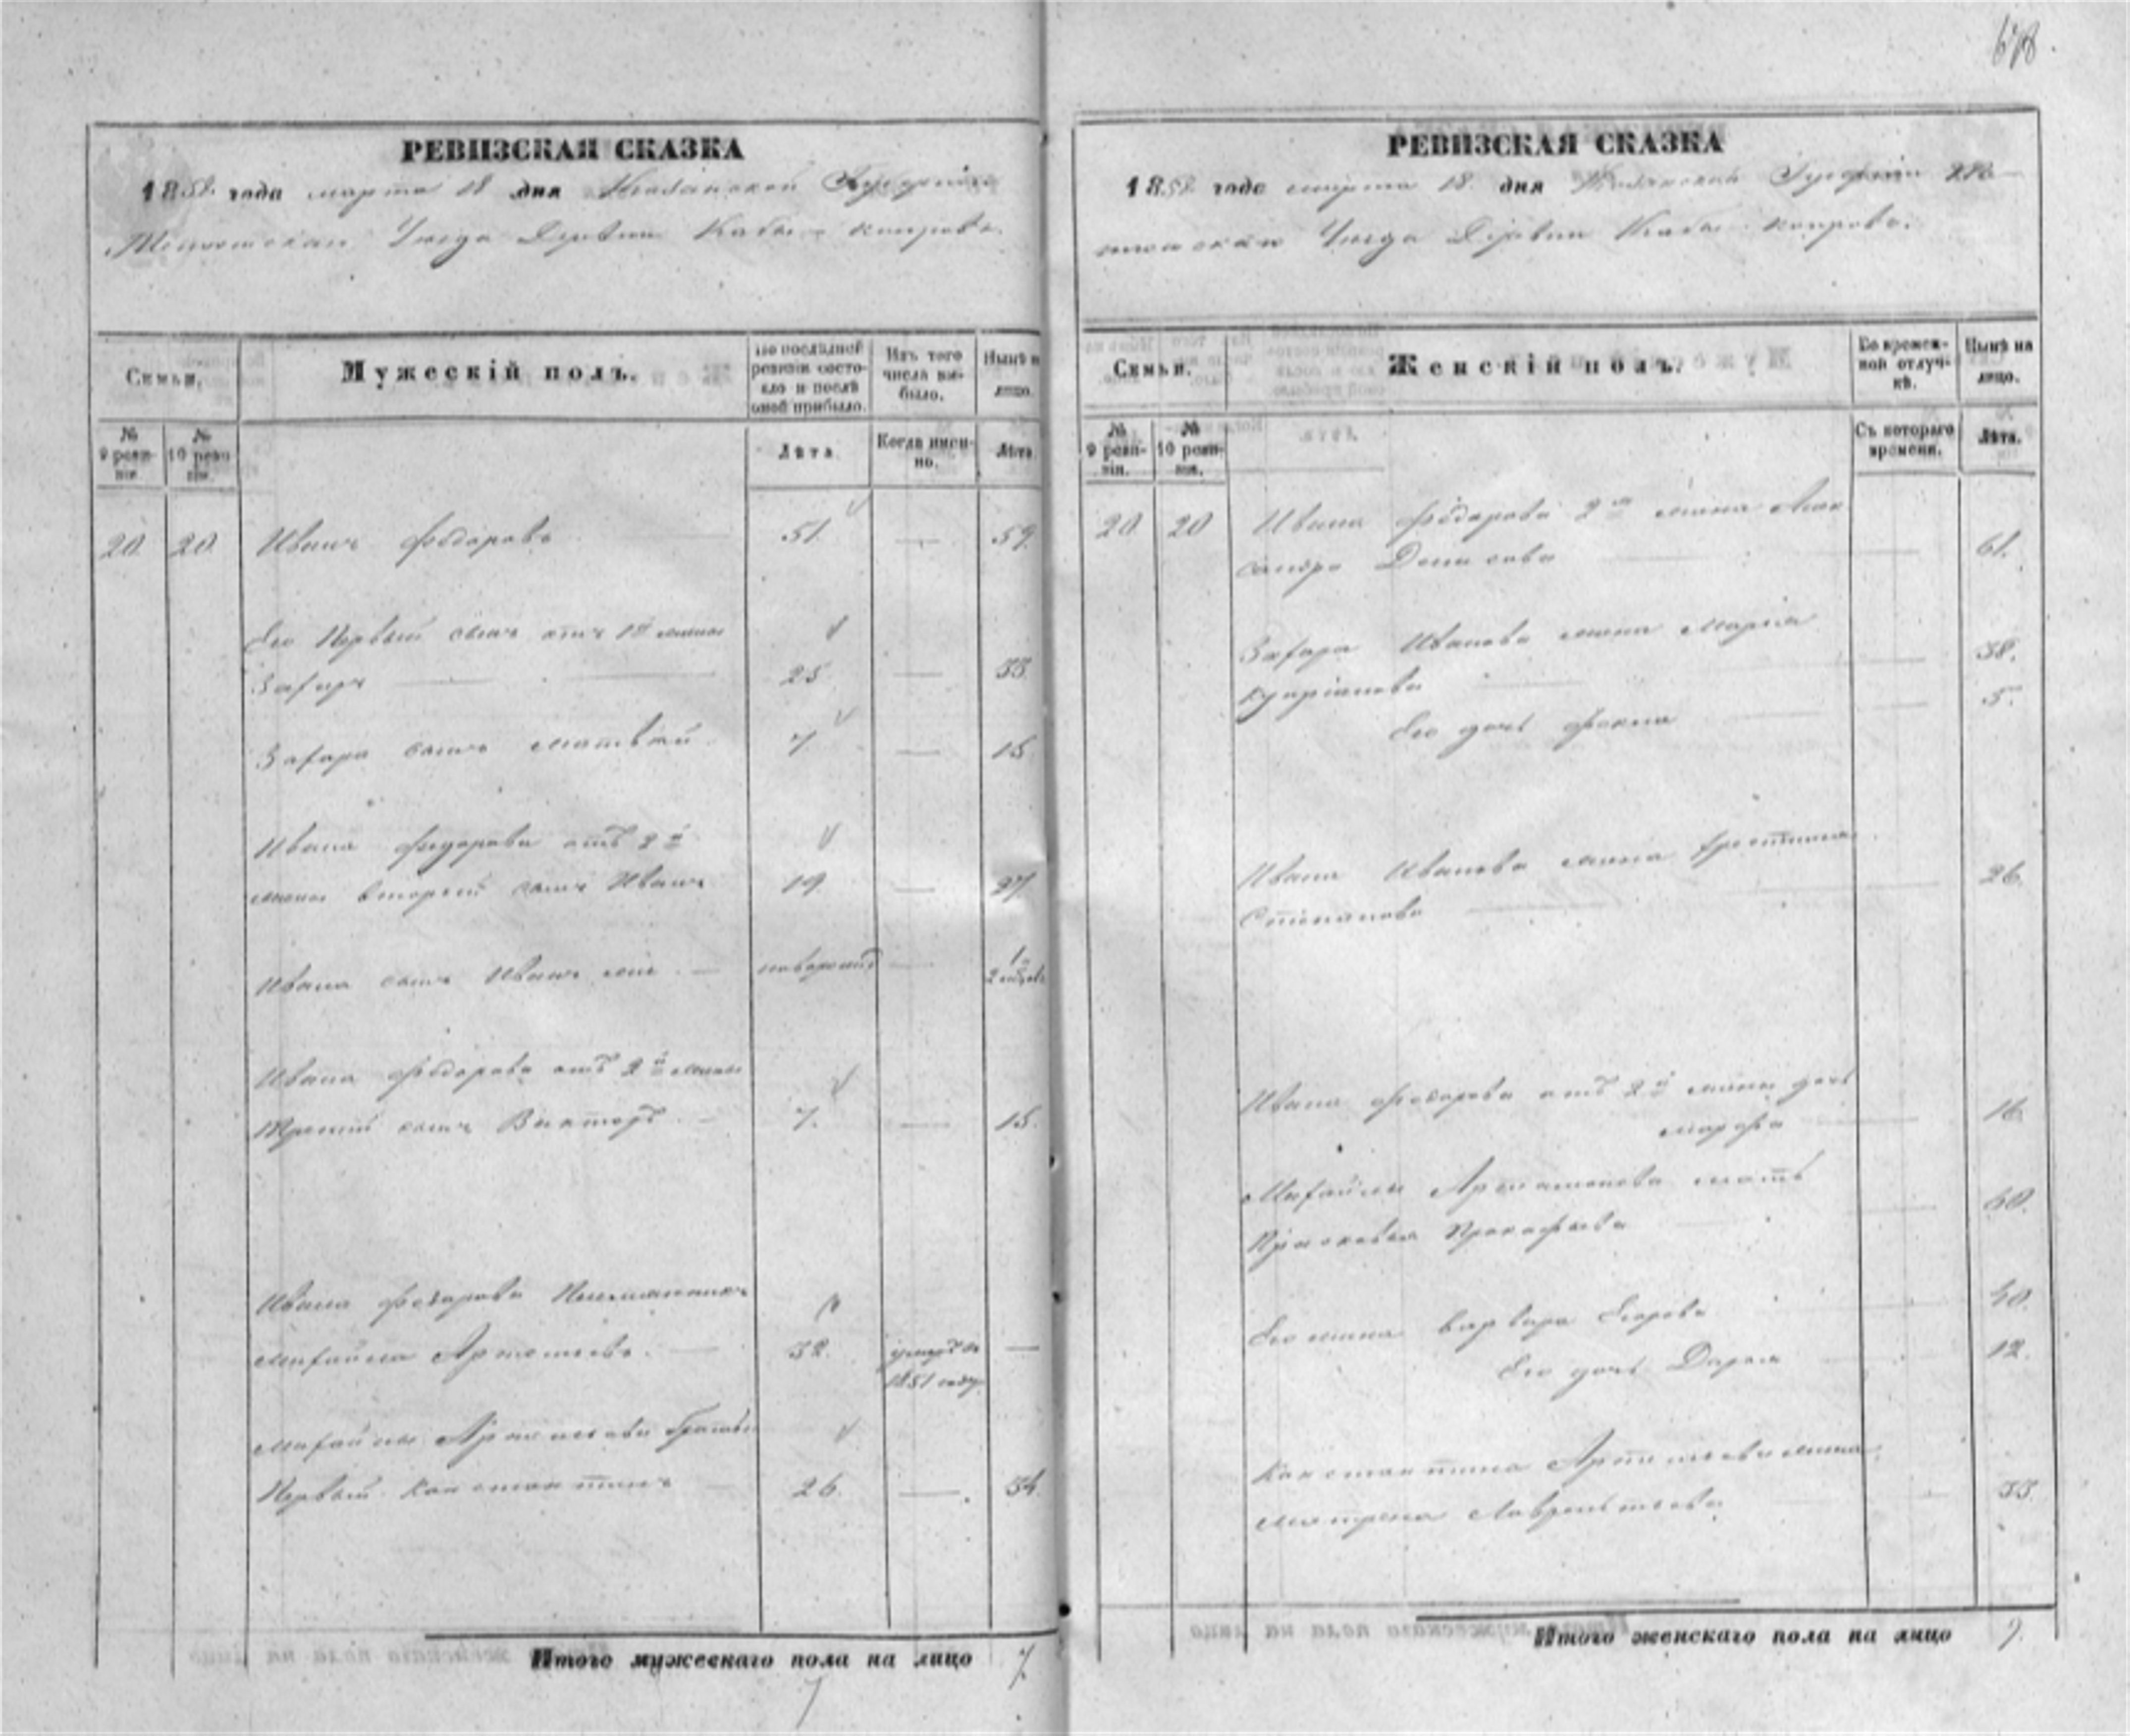 678.
РЕВИЗСКАЯ СКАЗКА
1858 года марта 18 дня Казанской Губерніи
Уезда Деревни Кабы-Копрова.
Семьи.
Мужескій полъ.
По послѣдней ревизіи состояло и послѣ оной прибыло.
Изъ того числа выбыло.
Нынѣ на лицо.
№ 9 ревизіи.
№ 10 ревизіи.
Лѣта.
Когда именно.
Лѣта.
20 20 Иванъ Федоровъ 51 — 59.
Его Первый сынъ отъ 1й жены
Захаръ — 25 — 33.
Захара сынъ Матвѣй 7 — 15
Ивана Федорова отъ 2й
жены вторый сынъ Иванъ 19 — 27.
Ивана сынъ Иванъ же — новорожд — 1/2 года
Ивана Федорова отъ 2й жены
Третій сынъ Викторъ — 7. — 15.
Ивана Федорова Племянникъ
Михайла Артемьевъ. — 32. умеръ въ —
1851 году
Михайлы Артемьева братья
Первый Константинъ — 26. — 34.
Итого мужескаго пола на лицо 7.
РЕВИЗСКАЯ СКАЗКА
1858 года марта 18 дня Казанской Губерніи
Уезда Деревни Кабы-Копрова.
Семьи.
Женскій полъ.
Во временной отлучкѣ.
Нынѣ на лицо.
№ 9 ревизіи.
№ 10 ревизіи.
Съ котораго времени.
Лѣта.
20 20 Ивана Федорова 2я жена Алек
сандра Денисова — 61.
Захара Иванова жена Марья
— 38.
Его дочь Фокла — 5.
Ивана Иванова жена
Степанова — 26.
Ивана Федорова отъ 2й жены дочь
Марфа — 16
Михайлы Артамонова мать
Прасковья Прокофьева — 60.
Его жена Варвара Егорова — 40.
Его дочь Дарья — 12.
Константина Артемьева жена
Матрена Лаврентьева — 33.
Итого женскаго пола на лицо 9.